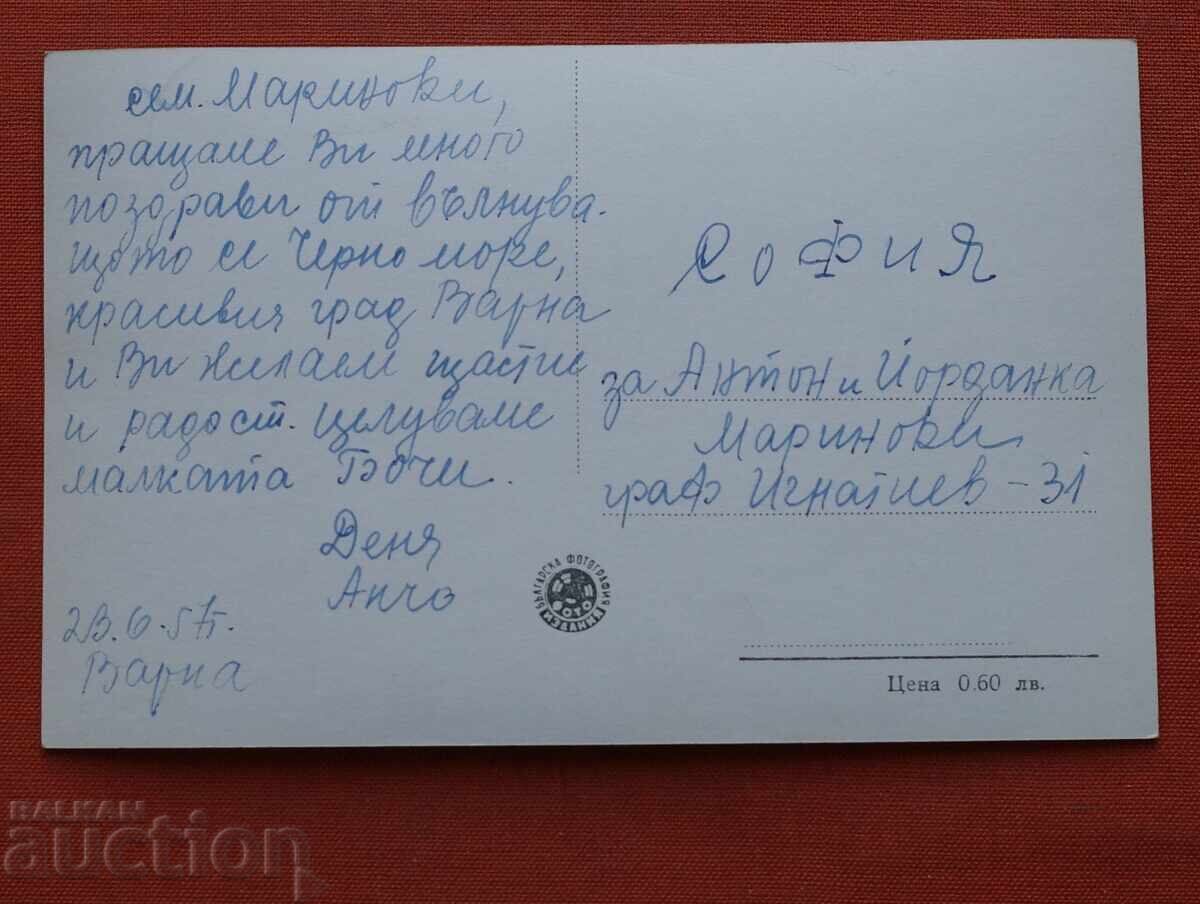 сем. Маринови,
пращаме Ви много
поздрави от вълнува-
щото се Черно море,
красивия град Варна
и Ви желаем щастие
и радост. Целуваме
малката Бочи.
Деня
Анчо
Варна
СОФИЯ
за Антон и Йорданка
Маринови
граф Игнатиев - 31
БЪЛГАРСКА ФОТОГРАФИЯ
ФОТО
ИЗДАНИЕ
Цена 0.60 лв.
BALKAN
auction